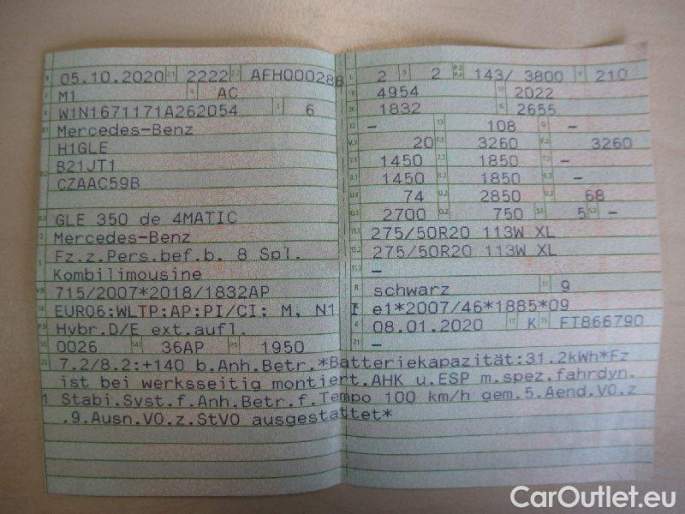 05.10.2020 2222 AFH000288
M1 AC
W1N1671171A262054 6
Mercedes-Benz
H1GLE
B21JT1
CZAAC59B
GLE 350 de 4MATIC
Mercedes-Benz
Fz.z.Pers.bef.b. 8 Spl.
Kombilimousine
715/2007*2018/1832AP
EURO6;WLTP;AP;PI/CI; M, N1 I
Hybr.D/E ext.aufl.
0026 36AP 1950
2 2 143/ 3800 210
4954 2022
1832 2655
- 108 -
20 3260 3260
1450 1850 -
1450 1850 -
74 2850 68
2700 750 5 -
275/50R20 113W XL
275/50R20 113W XL
-
schwarz 9
e1*2007/46*1885*09
08.01.2020 K FT866790
-
7.2/8.2:+140 b.Anh.Betr.*Batteriekapazität:31.2kWh*Fz
ist bei werksseitig montiert.AHK u.ESP m.spez.fahrdyn.
Stabi.Syst.f.Anh.Betr.f.Tempo 100 km/h gem.5.Aend.VO.z
.9.Ausn.VO.z.StVO ausgestattet*
CarOutlet.eu